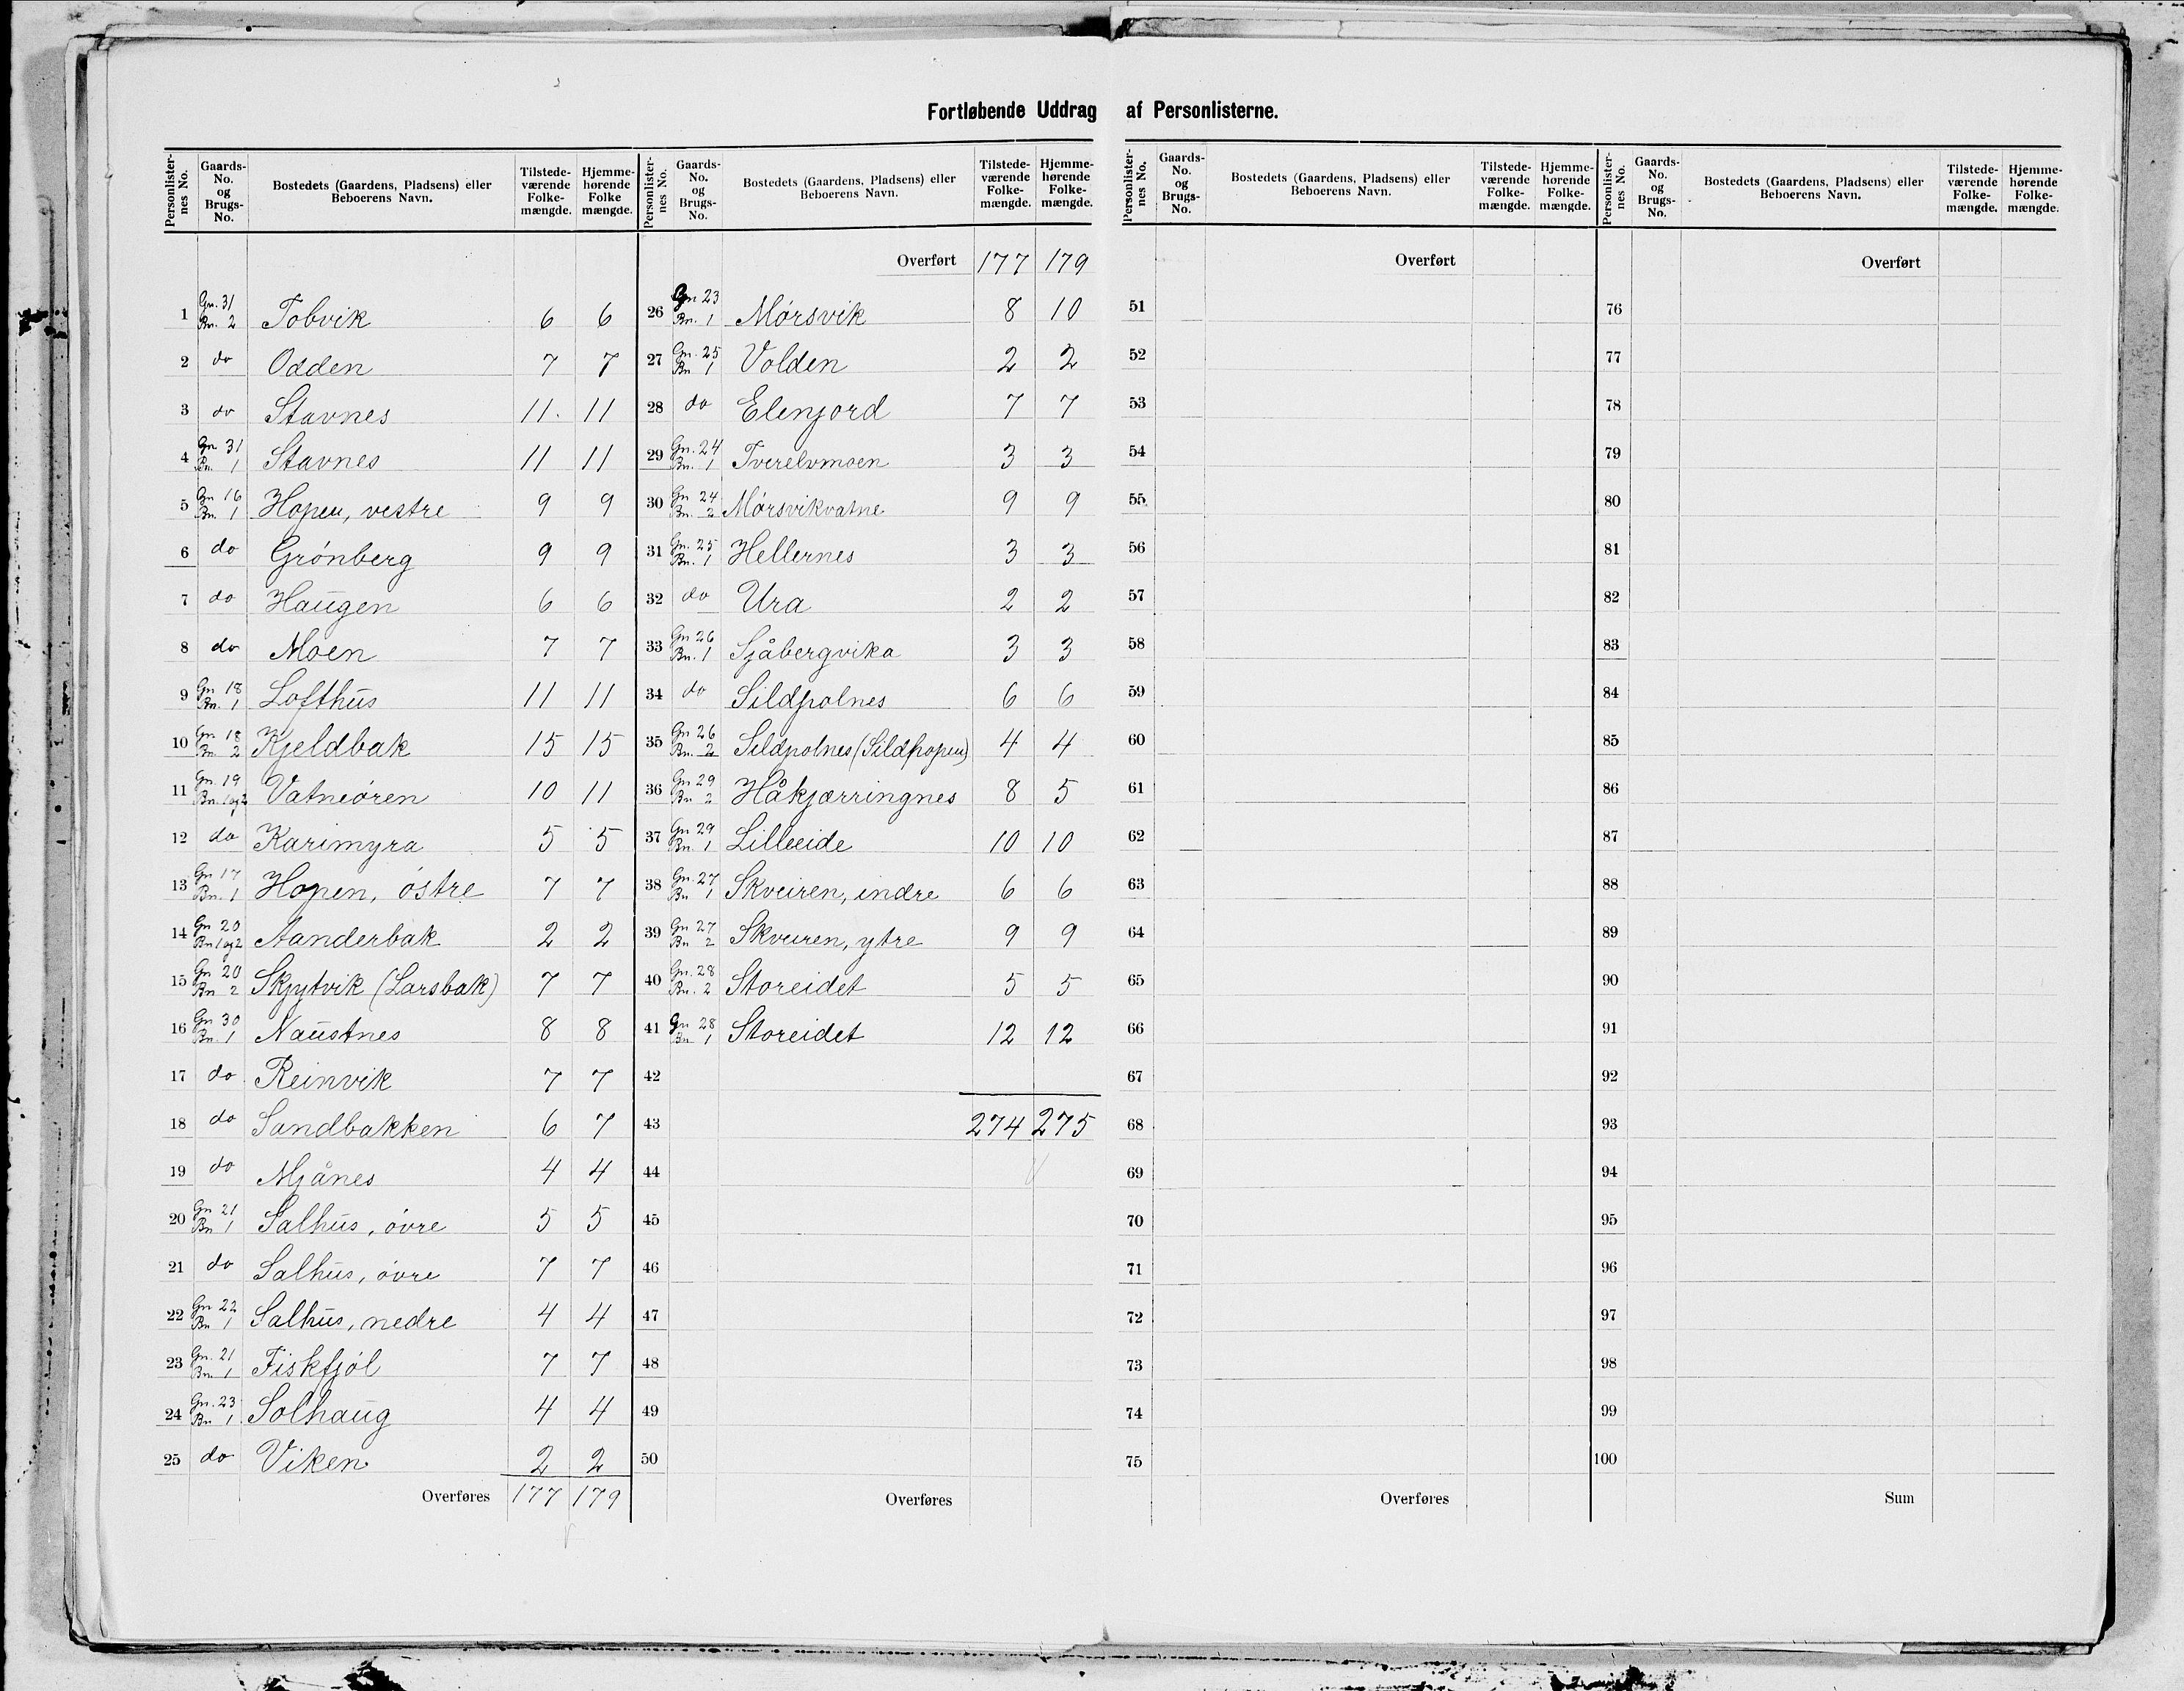 Fortløbende Uddrag af Personlisterne.
Personlister-nes No. Gaards-No. og Brugs-No. Bostedets (Gaardens, Pladsens) eller Beboerens Navn. Tilstede-værende Folke-mængde. Hjemme-hørende Folke mængde.
1 Gn. 31 Bn. 2 Tobvik 6 6
2 do Odden 7 7
3 do Stavnes 11. 11
4 Gn 31 Bn. 1 Stavnes 11 11
5 Gn 16 Bn. 1 Hopen, vestre 9 9
6 do Grónberg 9 9
7 do Haugen 6 6
8 do Moen 7 7
9 Gn 18 Bn. 1 Lofthus 11 11
10 Gn 18 Bn 2 Kjeldbak 15 15
11 Gn. 19 Bn. 1 og 2 Vatneóren 10 11
12 do Karimyra 5 5
13 Gn 17 Bn. 1 Hopen, óstre 7 7
14 Gn 20 Bn 1 og 2 Aanderbak 2 2
15 Gn 20 Bn 2 Skjytvik (Larsbak) 7 7
16 Gn 30 Bn. 1 Naustnes 8 8
17 do Reinvik 7 7
18 do Sandbakken 6 7
19 do Mjånes 4 4
20 Gn 21 Bn 1 Salhus, óvre 5 5
21 do Salhus, óvre 7 7
22 Gn 22 Bn 1 Salhus, nedre 4 4
23 Gn. 21 Bn 1 Fiskfjól 7 7
24 Gn. 23 Bn 1 Solhaug 4 4
25 do Viken 2 2
Overføres 177 179
Personlister-nes No. Gaards-No. og Brugs-No. Bostedets (Gaardens, Pladsens) eller Beboerens Navn. Tilstede-værende Folke-mængde. Hjemme-hørende Folke-mængde.
Overført 177 179
26 Gn 23 Bn. 1 Mórsvik 8 10
27 Gn. 25 Bn 1 Volden 2 2
28 do Elenjord 7 7
29 Gn. 24 Bn. 1 Tverelvmoen 3 3
30 Gn 24 Bn. 2 Mórsvikvatne 9 9
31 Gn. 25 Bn. 1 Hellernes 3 3
32 do Ura 2 2
33 Gn 26 Bn. 1 Sjåbergvika 3 3
34 do Sildpolnes 6 6
35 Gn 26 Bn. 2 Sildpolnes (Sildhopen) 4 4
36 Gn 29 Bn 2 Håkjærringnes 8 5
37 Gn 29 Bn. 1 Lilleeide 10 10
38 Gn. 27 Bn 1 Skveiren, indre 6 6
39 Gn 27 Bn 2 Skveiren, ytre 9 9
40 Gn. 28 Bn. 2 Storeidet 5 5
41 Gn 28 Bn 1 Storeidet 12 12
42
43 274 275
44
45
46
47
48
49
50
Overføres
Personlister-nes No. Gaards-No. og Brugs-No. Bostedets (Gaardens, Pladsens) eller Beboerens Navn. Tilstede-værende Folke-mængde. Hjemme-hørende Folke-mængde.
Overført
51
52
53
54
55
56
57
58
59
60
61
62
63
64
65
66
67
68
69
70
71
72
73
74
75
Overføres
Personlister-nes No. Gaards-No. og Brugs-No. Bostedets (Gaardens, Pladsens) eller Beboerens Navn. Tilstede-værende Folke-mængde. Hjemme-hørende Folke-mængde.
Overført
76
77
78
79
80
81
82
83
84
85
86
87
88
89
90
91
92
93
94
95
96
97
98
99
100
Sum